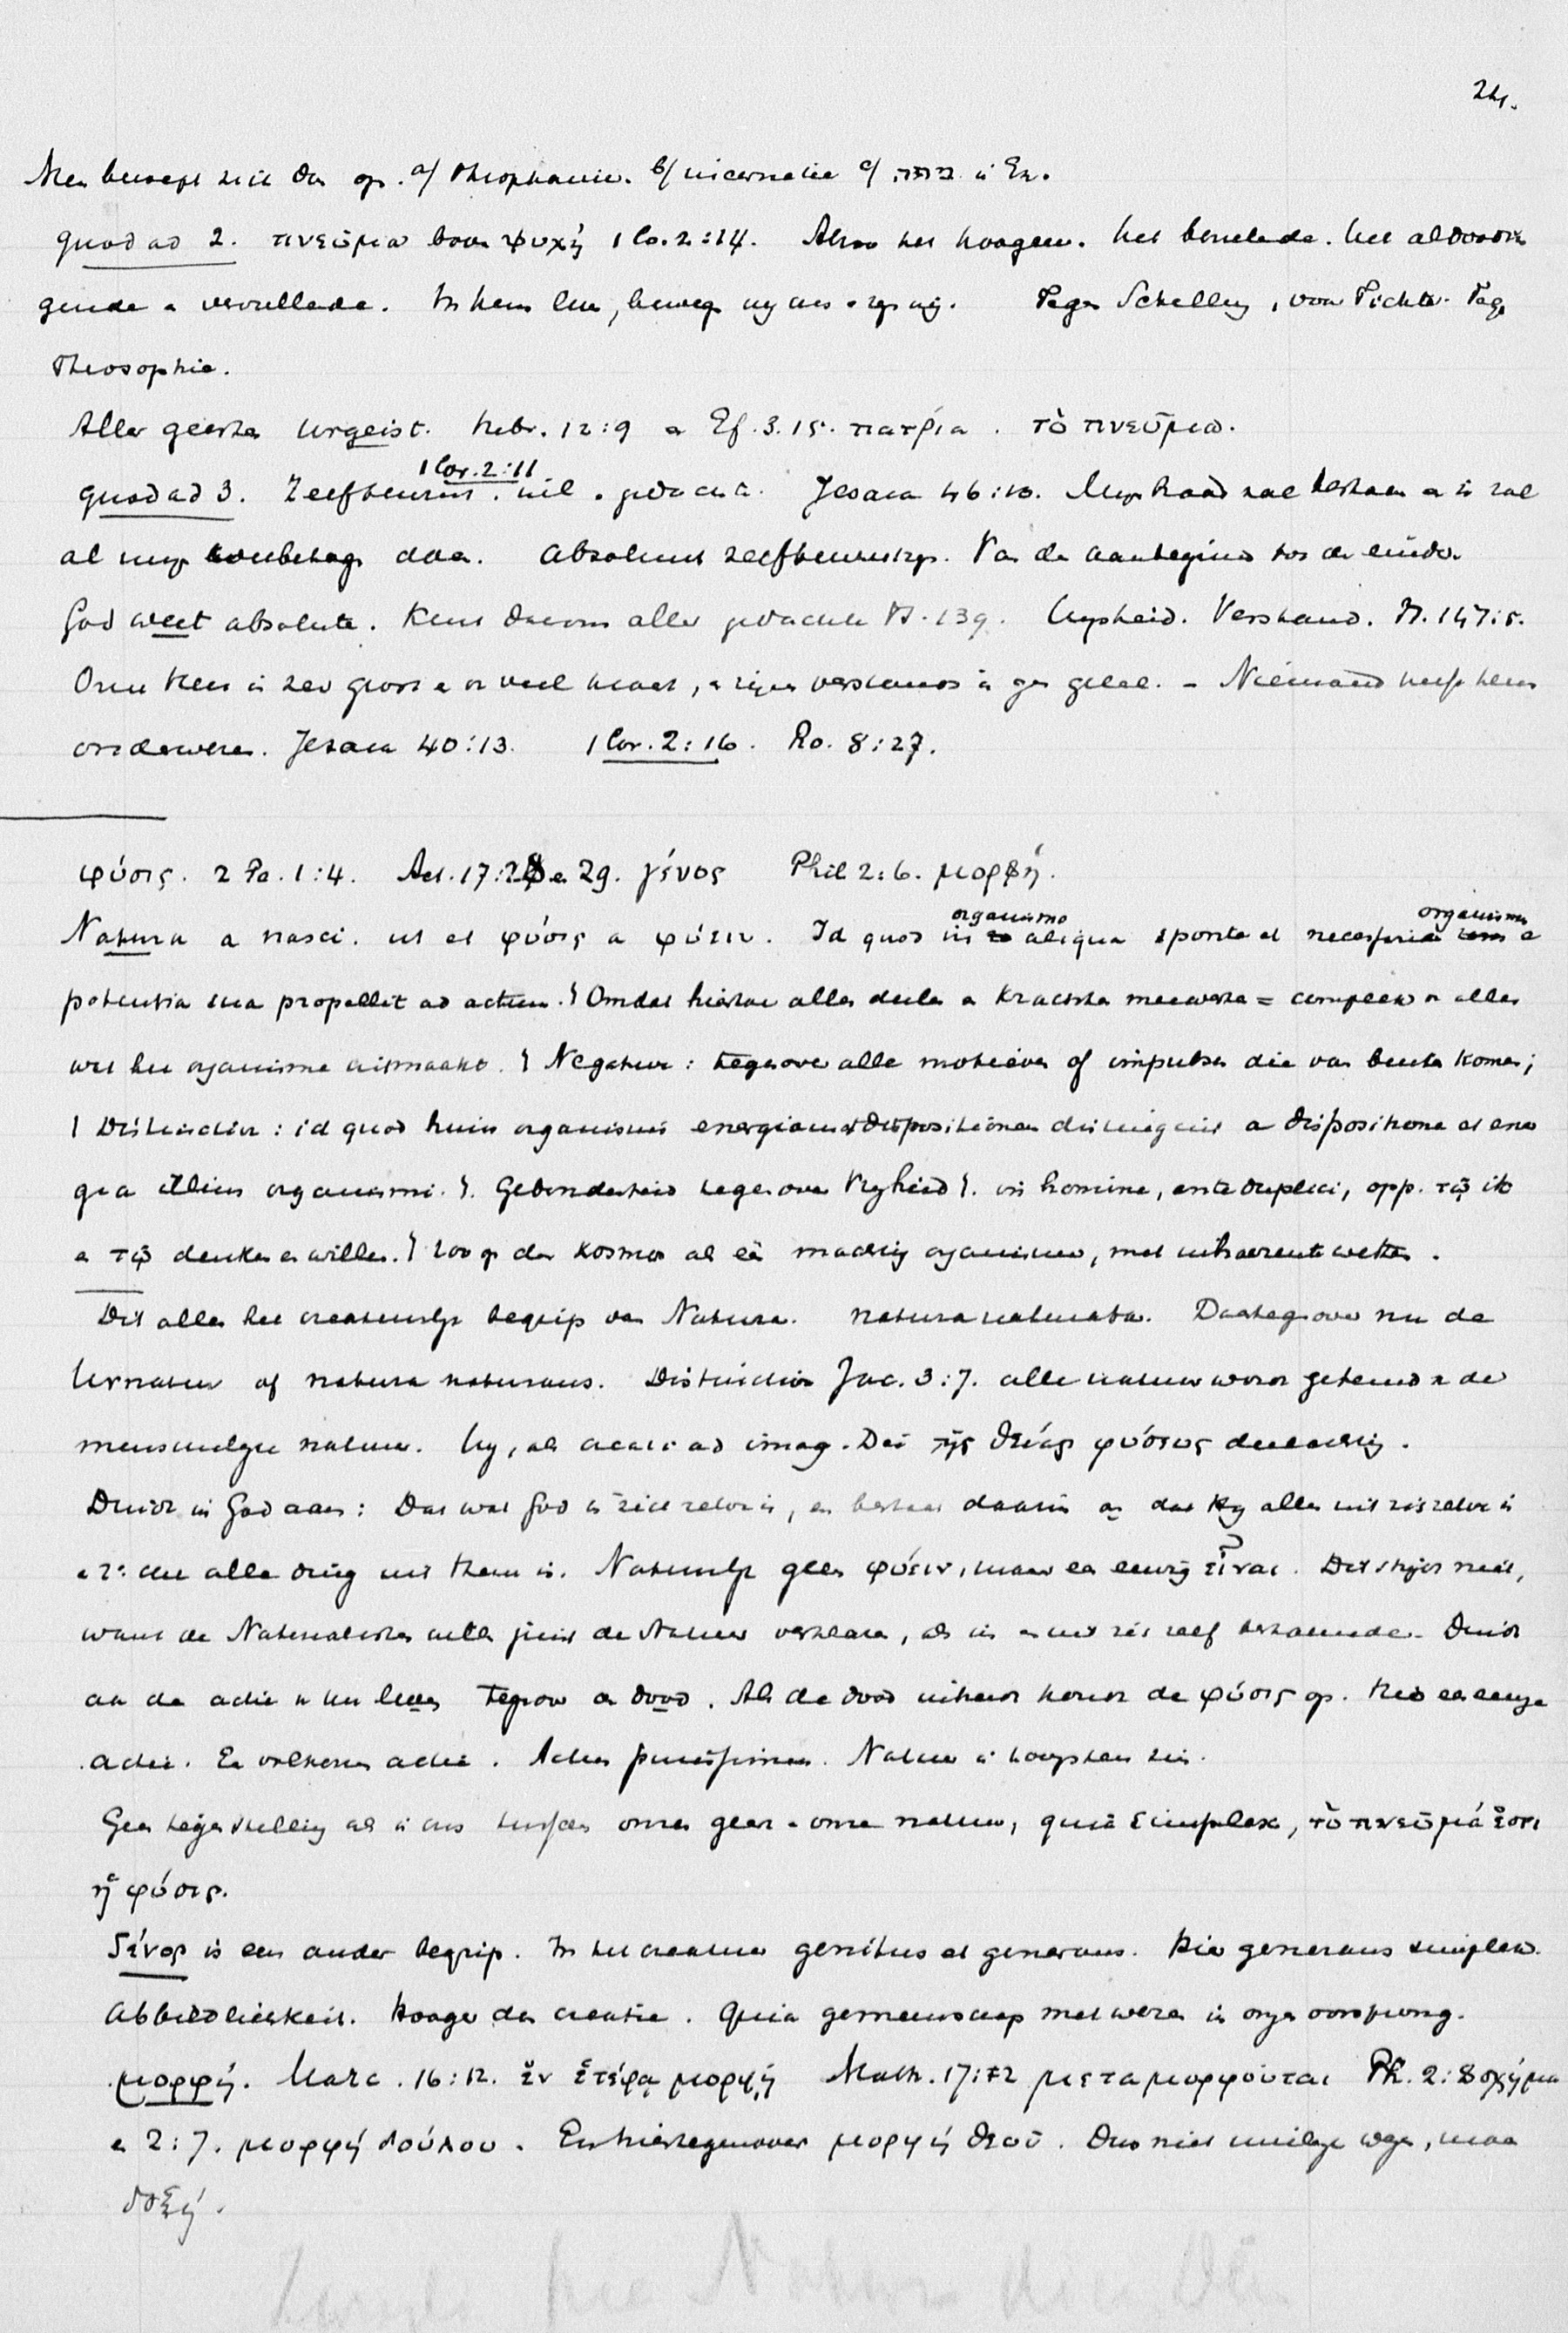 24.
Men beroept zich dan op. a/ Theophanie. b/ incarnatie c/ in Ex.
quod ad 2. πνεῦμα boven ψυχή 1 Co. 2:14. Alzoo het hoogere. het bezielende. het aldoordrin
gende en vervullende. In hem leven, bewegen wy ons en zyn wy. Tegen Schelling, von Fichte. Tegen
Theosophie.
Aller geesten Urgeist. Hebr. 12:9 en Ef. 3.15. πατρία. τὸ πνεῦμα.
1 Cor. 2:11
quod ad 3. Zelfbewust. wil en gedachte. Jesaia 46:10. Myn Raad zal bestaan en ik zal
al myn welbehagen doen. Absoluut zelfbewustzyn. Van den aanbeginne tot den einde.
God weet absolute. Kent daarom aller gedachten Ps. 139. Wysheid. Verstand. Ps. 147:5.
Onze Heer is zeer groot en van veel kracht, en zijns verstands is geen getal. - Niemand heeft hem
onderwezen. Jesaia 40:13. 1 Cor. 2:16. Ro. 8:27.
φύσις. 2 Pe. 1:4. Act. 17:28 en 29. γένος Phil 2:6. μορφή.
organismo organismum
Natura a nasci. ut et φύσις a φύειν. Id quod in re aliqua sponte et necessario rem e
potentia sua propellit ad actum. } Omdat hiertoe alle deelen en krachten meewerken = complex van alles
wat het organisme uitmaakt. } Negatieve: tegenover alle motieven of impulsen die van buiten komen;
} Distinctive: id quod huius organismi energiam et dispositionem distinguit a dispositione et ener
gia illius organismi. }. Gebondenheid tegenover Vryheid }. in homine, ente duplici, opp. τῷ ik
en τῷ denken en willen. } Zoo op den Kosmos als één machtig organisme, met inhaerente wetten.
Dit alles het creatuurlyk begrip van Natura. natura naturata. Daartegenover nu de
Urnatur of natura naturans. Distinctie Jac. 3:7. alle natuur wordt getemd van de
menschelyke natuur. Wy, als creati ad imag. Dei τῆς θείας φύσεως deelachtig.
Duidt in God aan: Dat wat God in zich zelve is, en bestaat daarin dat Hy alles uit zich zelve is
en 2o dat alle ding uit Hem is. Natuurlyk geen φύειν, maar een eeuwig εἶναι. Dit strijdt niet,
want de Naturalisten willen juist de Natuur verklaren, als in en uit zich zelf bestaande. Duidt
aan de actie van het leven tegenover den dood. Als de dood intreedt houdt de φύσις op. Hier een eeuwige
actie. Een volkomen actie. Actus purissimus. Natuur in hoogsten zin.
Geen tegenstelling als in ons tusschen onzen geest en onze natuur, quia simplex, τὸ πνεῦμά ἐστι
ἡ φύσις.
Γένος is een ander begrip. In het creatuur genitus et generans. Hier generans simplex.
Abbildlichkeit. Hooger dan creatie. Quia gemeenschap met wezen in onzen oorsprong.
μορφή. Marc. 16:12. ἐν ἑτέρᾳ μορφῇ Matth. 17:2 μεταμορφοῦται Ph. 2:8 σχήμα
en 2:7. μορφή δούλου. En hiertegenover μορφή θεοῦ. Dus niet uiterlyk wezen, maar
δοξή.